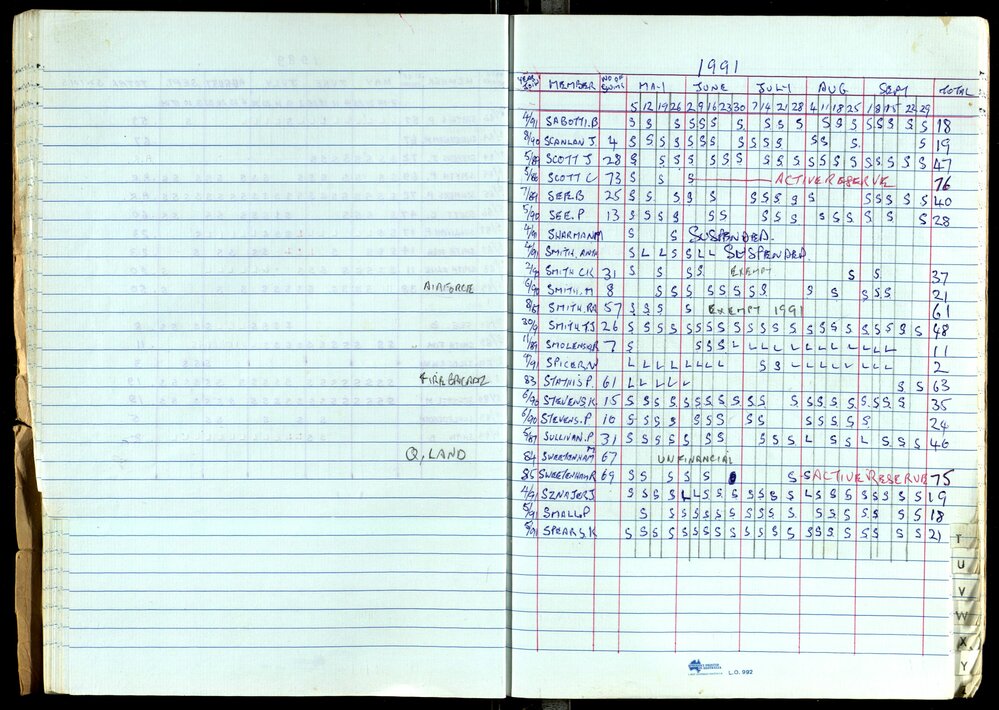 AIRFORCE
FIRE BRIGADE
Q, LAND
1991
YEARS JOIN MEMBER NO OF SWIMS MAY JUNE JULY AUG SEPT TOTAL
5 12 19 26 2 9 16 23 30 7 14 21 28 4 11 18 25 1 8 15 22 29
4/91 SABOTTI.B S S S S S S S S S S S S S S S S S S 18
8/90 SCANLAN J. 4 S S S S S S S S S S S S S S S 19
5/89 SCOTT J 28 S S S S S S S S S S S S S S S S S S S 47
5/86 SCOTT C 73 S S S ACTIVE RESERVE 76
7/89 SEE.B 25 S S S S S S S S S S S S S S S 40
5/90 SEE.P 13 S S S S S S S S S S S S S S S 28
4/91 SWARMAN M S S SUSPENDED.
4/91 SMITH. S L L S S L L SUSPENDED
SMITH CK 31 S S S S EXEMPT S S 37
6/90 SMITH. M 8 S S S S S S S S S S S S S 21
8/87 SMITH. RA 57 S S S S EXEMPT 1991 61
SMITH TJ 26 S S S S S S S S S S S S S S S S S S S S S S 48
11/89 SMOLENSKI R 7 S S S S L L L L L L L L L L L L L 11
4/91 SPICER.N L L L L L L L L S S L L L L L L L 2
83 STATHIS.P. 61 L L L L L S S 63
6/90 STEVENS.K 15 S S S S S S S S S S S S S S S S S S S S 35
6/90 STEVENS.P 10 S S S S S S S S S S S S S S 24
5/87 SULLIVAN.P 31 S S S S S S S S S S L S S L S S S 46
84 SWEETENHAM M 67 UNFINANCIAL
85 SWEETENHAM R 69 S S S S S S S ACTIVE RESERVE 75
4/91 SZNAJER J S S S S L L S S S S S S S L S S S S S S S S 19
5/91 SMALL.P S S S S S S S S S S S S S S S S S S 18
5/91 SPEARS.K S S S S S S S S S S S S S S S S S S S S S 21
T
U
V
W
X
Y
L.O. 992